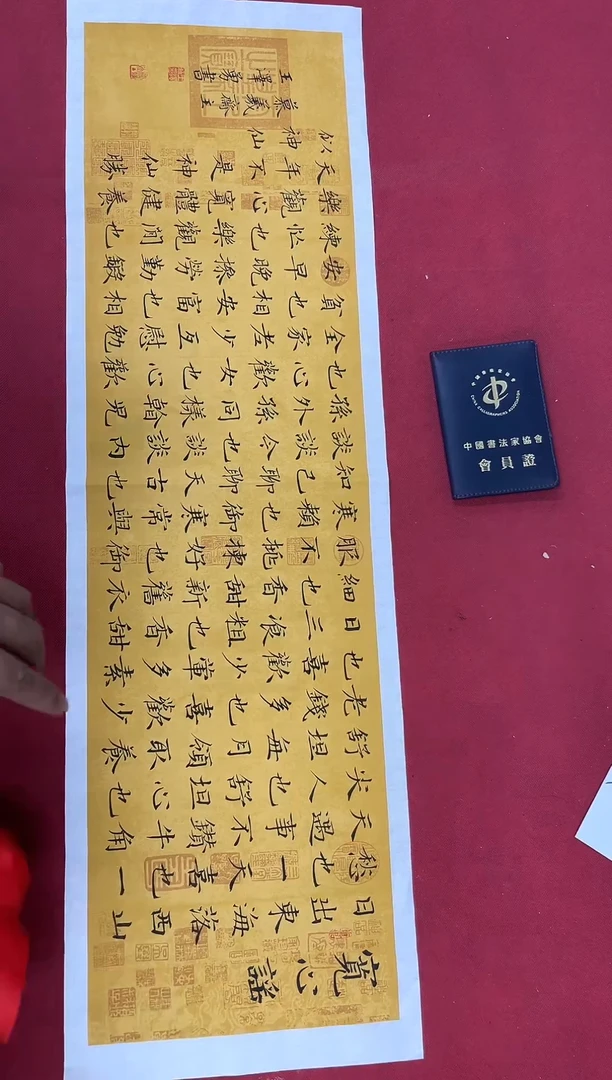 寬心謠
日出東海落西山
愁也一天喜也一
天遇事不鑽牛角
尖人也舒坦心也
舒坦每月領取養
老錢多也喜歡少
也喜歡少葷多素
日三湌粗也香甜
細也香甜新舊衣
服不挑揀好也御
寒賴也御寒常與
知己聊聊天古也
談談今也談談內
孫外孫同樣幹兒
也心歡女也心歡
全家老少互慰勉
負也相安富也相
安早晚操勞勤鍛
練忙也樂觀閒也
樂觀心寬體健養
天年不是神仙勝
似神仙
慕羲齋主
王澤勇書
中國書法家協會
CHINA CALLIGRAPHERS ASSOCIATION
中國書法家協會
會員證